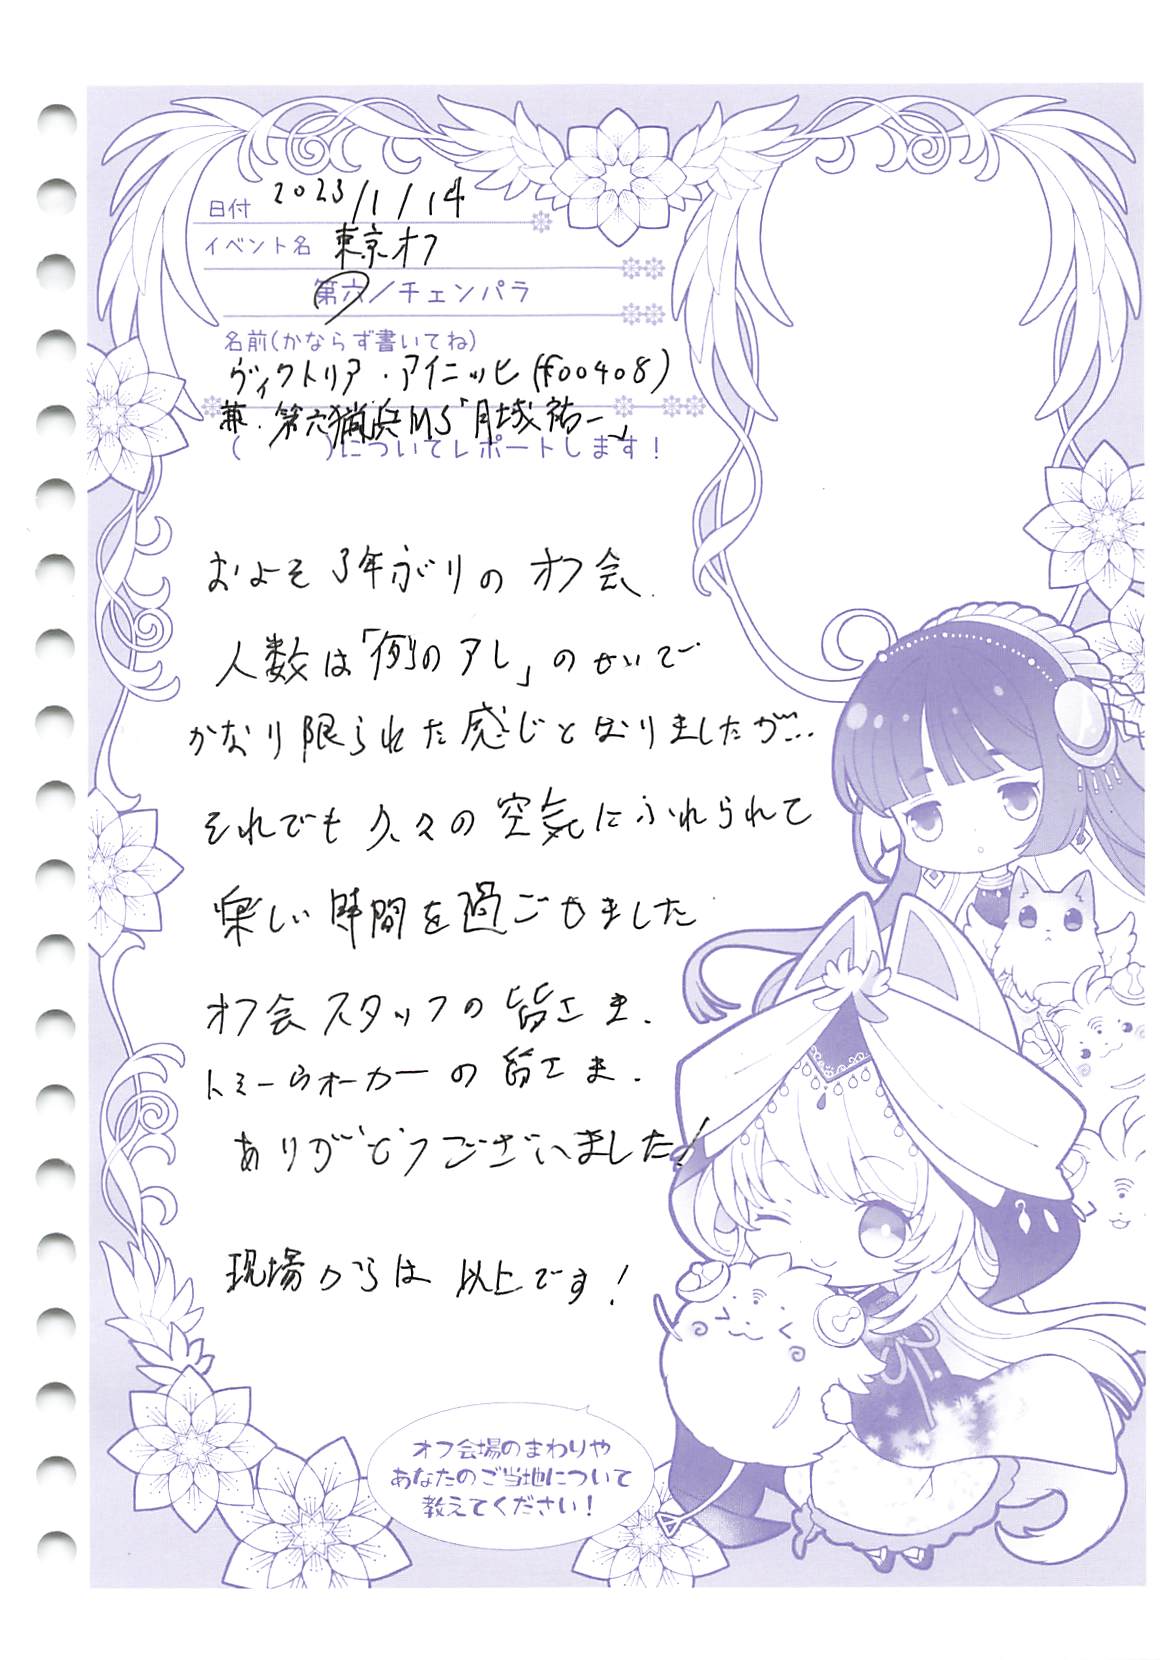 日付 2023/1/14
イベント名 東京オフ
第六/チェンパラ
名前(かならず書いてね)
ヴィクトリア・アイニッヒ(f00408)
兼・第六猟兵MS「月城祐一」
( )についてレポートします!
およそ3年ぶりのオフ会
人数は「例のアレ」のせいで
かなり限られた感じとなりましたが…
それでも久々の空気にふれられて
楽しい時間を過ごせました
オフ会スタッフの皆さま、
トミーウォーカーの皆さま、
ありがとうございました!
現場からは以上です!
オフ会場のまわりや
あなたのご当地について
教えてください!